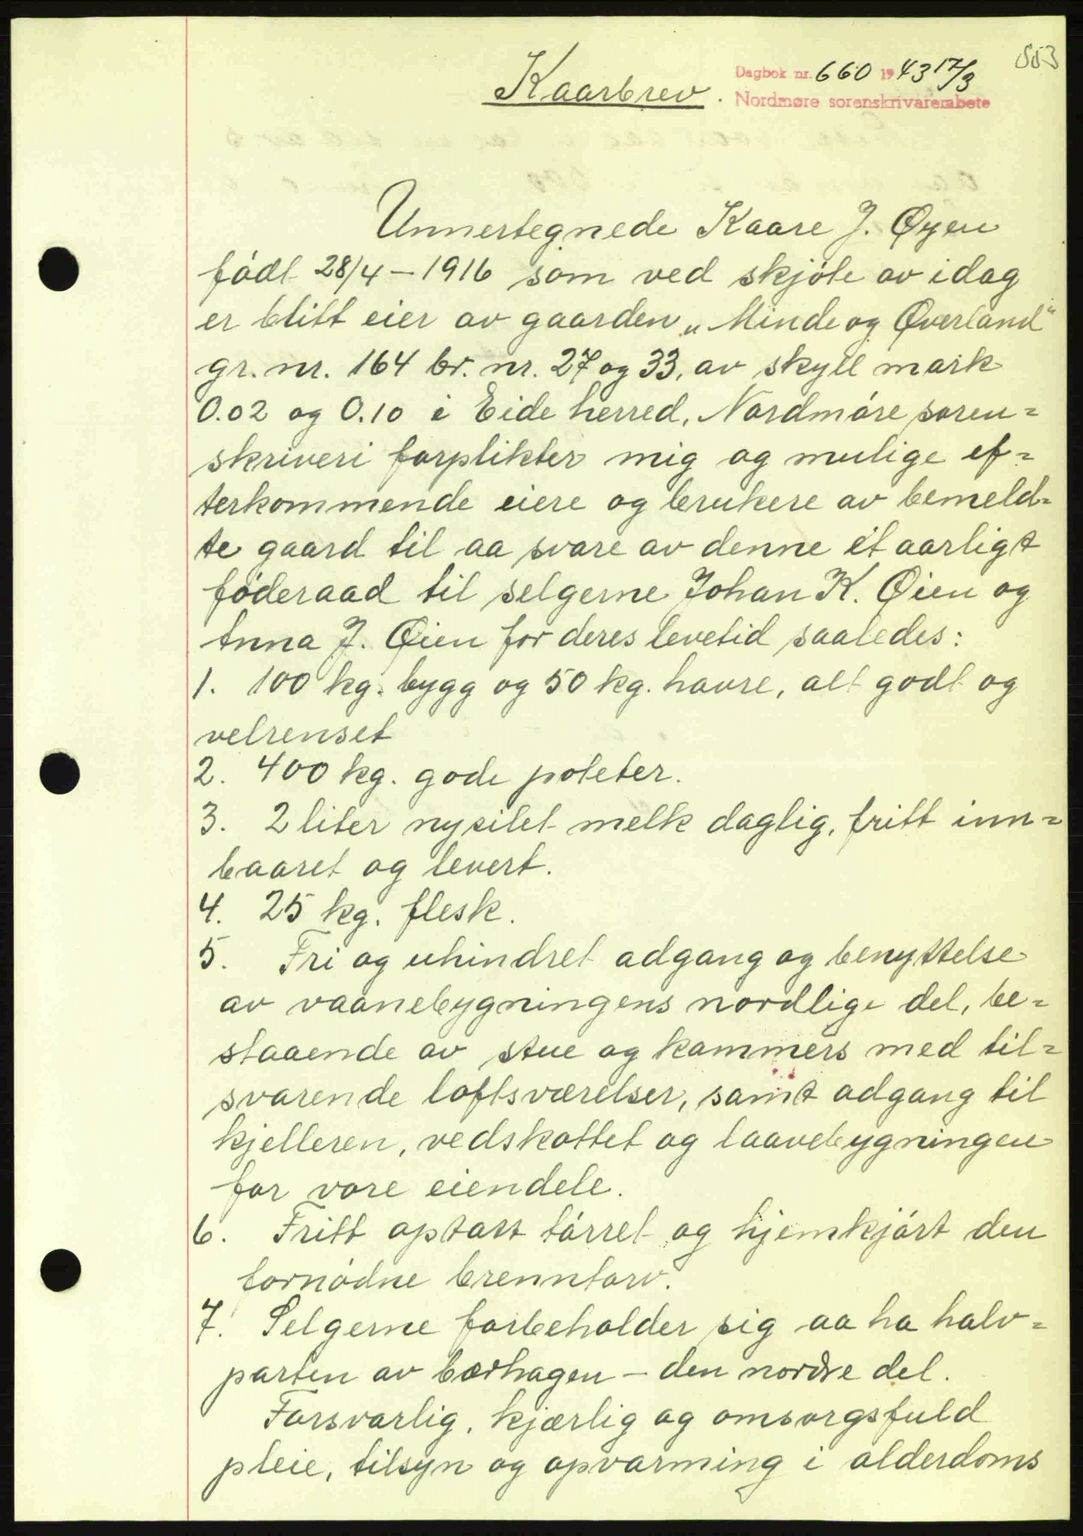 553
Kaarbrev.
Dagbok nr. 660 1943 17/3
Nordmøre sorenskrivarembete
Unnertegnede Kaare J. Øyen
født 28/4 – 1916 som ved skjøte av idag
er blitt eier av gaarden „Minde og Øverland"
gr. nr. 164 br. nr. 27 og 33, av skyll mark
0.02 og 0.10 i Eide herred, Nordmøre soren=
skriveri forplikter mig og mulige ef=
terkommende eiere og brukere av bemeld=
te gaard til aa svare av denne et aarligt
føderaad til selgerne Johan K. Øien og
Anna J. Øien for deres levetid saaledes:
1. 100 kg. bygg og 50 kg. havre, alt godt og
velrenset
2. 400 kg. gode poteter.
3. 2 liter nysilet melk daglig, fritt inn=
baaret og levert.
4. 25 kg. flesk.
5. Fri og uhindret adgang og benyttelse
av vaanebygningens nordlige del, be=
staaende av stue og kammers med til=
svarende loftsværelser, samt adgang til
kjelleren, vedskottet og laavebygningen
for vore eiendele.
6. Fritt optatt tørret og hjemkjørt den
fornødne brenntorv.
7. Selgerne forbeholder sig aa ha halv=
parten av bærhagen – den nordre del.
Forsvarlig, kjærlig og omsorgsfuld
pleie, tilsyn og opvarming i alderdoms